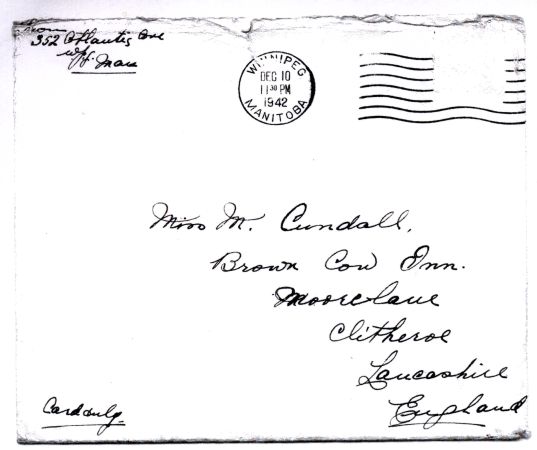 From
352 Atlantis Ave
Wpg. Man
WINNIPEG
DEC 10
11 30 PM
1942
MANITOBA
Miss M. Cundall,
Brown Cow Inn.
Moore lane
Clitheroe
Lancashire
England
Card only.